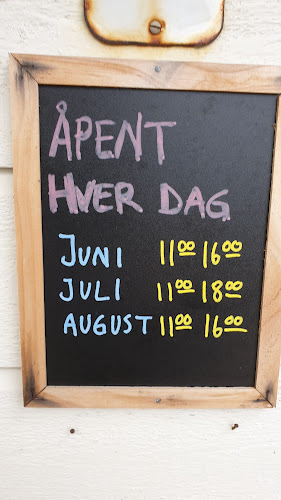 ÅPENT
HVER DAG
JUNI 1100 1600
JULI 1100 1800
AUGUST 1100 1600